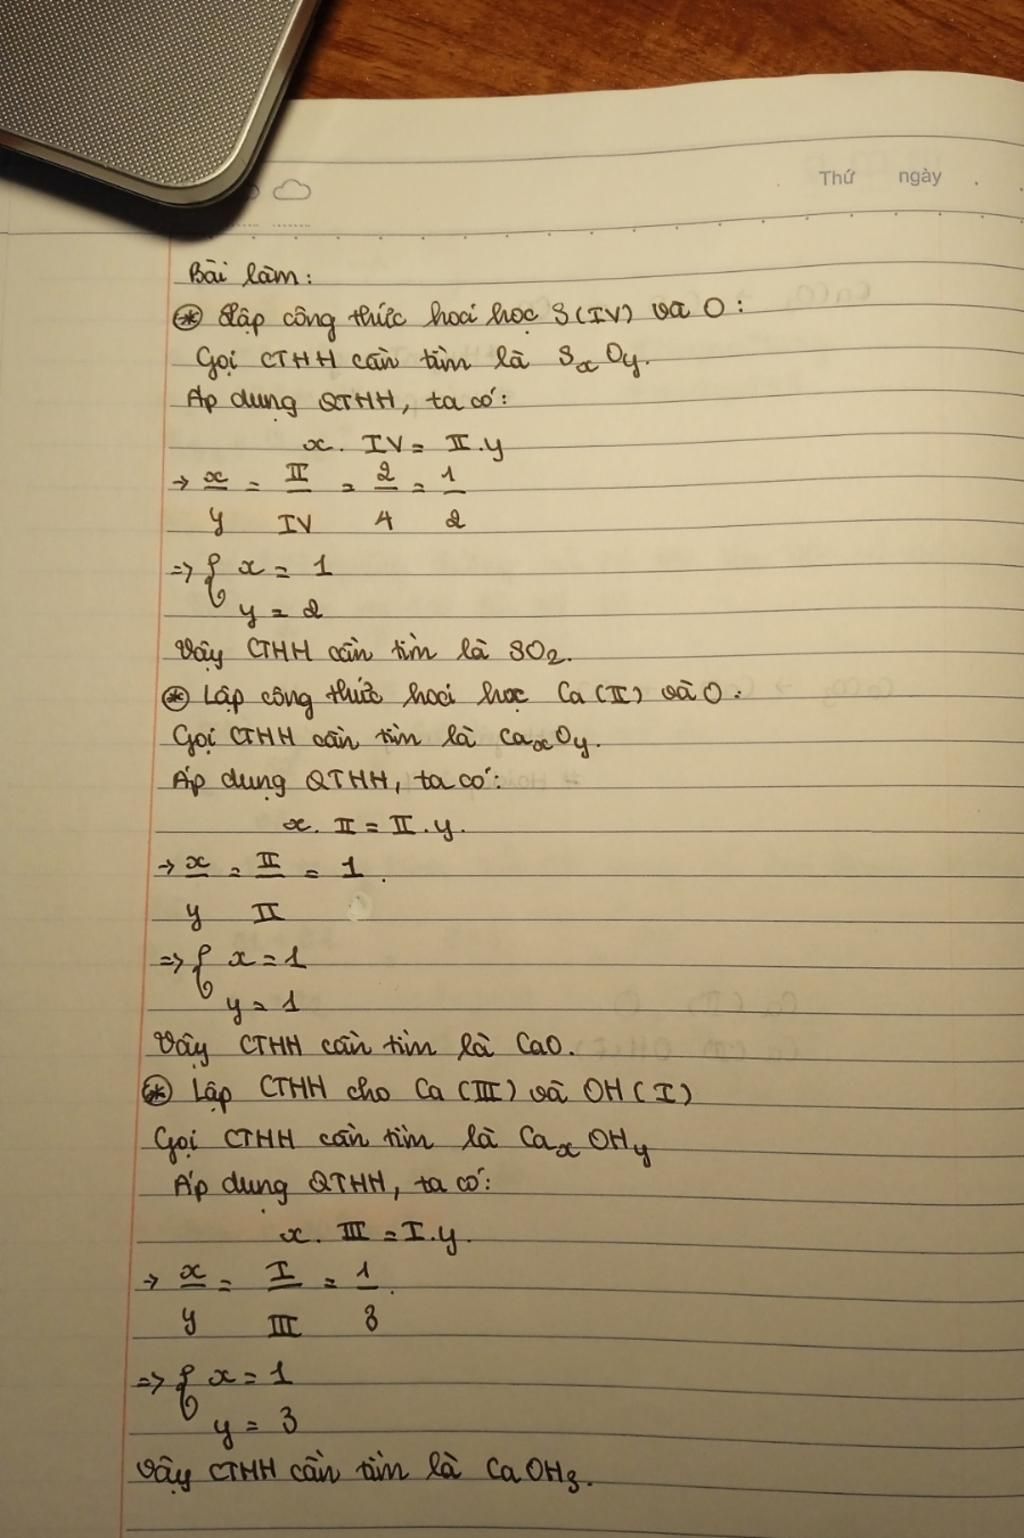 Thứ ngày
Bài làm:
* Lập công thức hoá học S(IV) và O:
Gọi CTHH cần tìm là SxOy.
Áp dụng QTHH, ta có:
x. IV = II.y
→ x/y = II/IV = 2/4 = 1/2
=> { x = 1
y = 2
Vậy CTHH cần tìm là SO2.
* Lập công thức hoá học Ca (II) và O.
Gọi CTHH cần tìm là CaxOy.
Áp dụng QTHH, ta có:
x. II = II.y.
→ x/y = II/II = 1.
=> { x = 1
y = 1
Vậy CTHH cần tìm là CaO.
* Lập CTHH cho Ca (III) và OH (I)
Gọi CTHH cần tìm là CaxOHy
Áp dụng QTHH, ta có:
x. III = I.y.
→ x/y = I/III = 1/3.
=> { x = 1
y = 3
Vậy CTHH cần tìm là CaOH3.